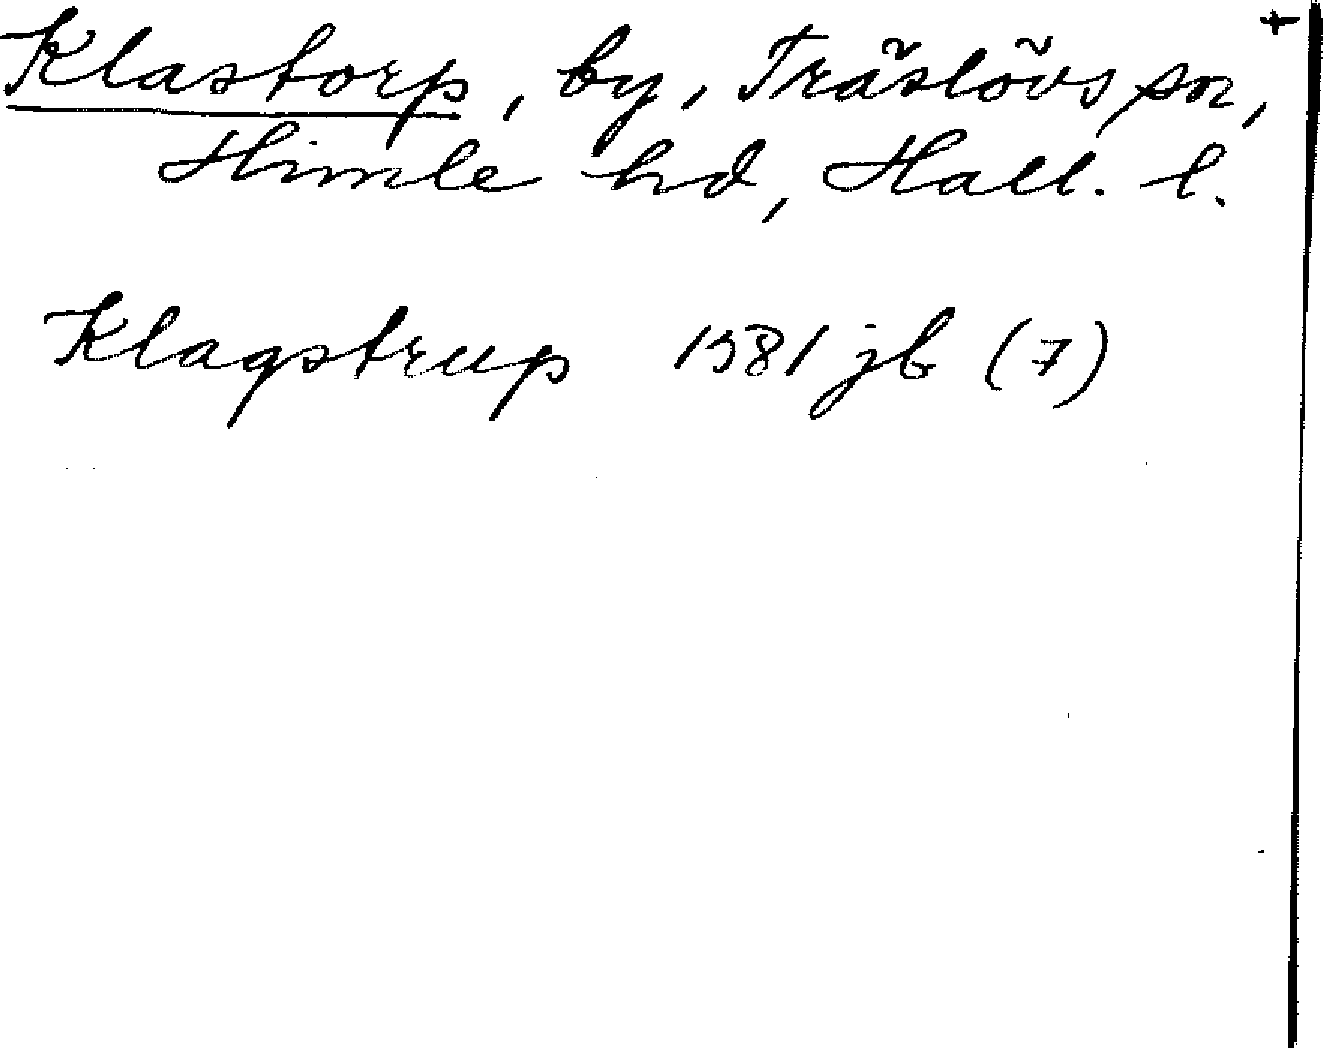 Klastorp, by, Träslövs sn, +
Himle hd, Hall. l.
Klagstrup 1581 jb (7)